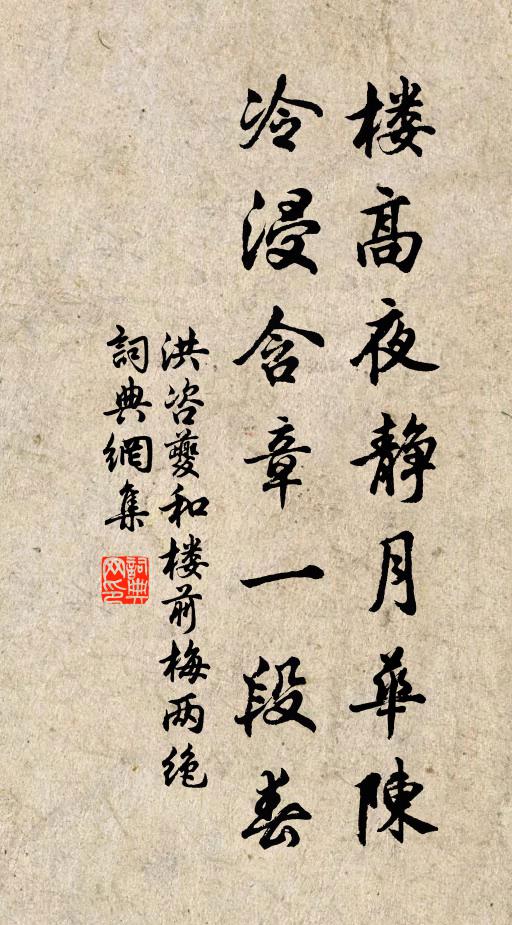 楼高夜静月华陳
冷浸含章一段春
洪咨夔和楼前梅两绝
詞典網集
詞典网印